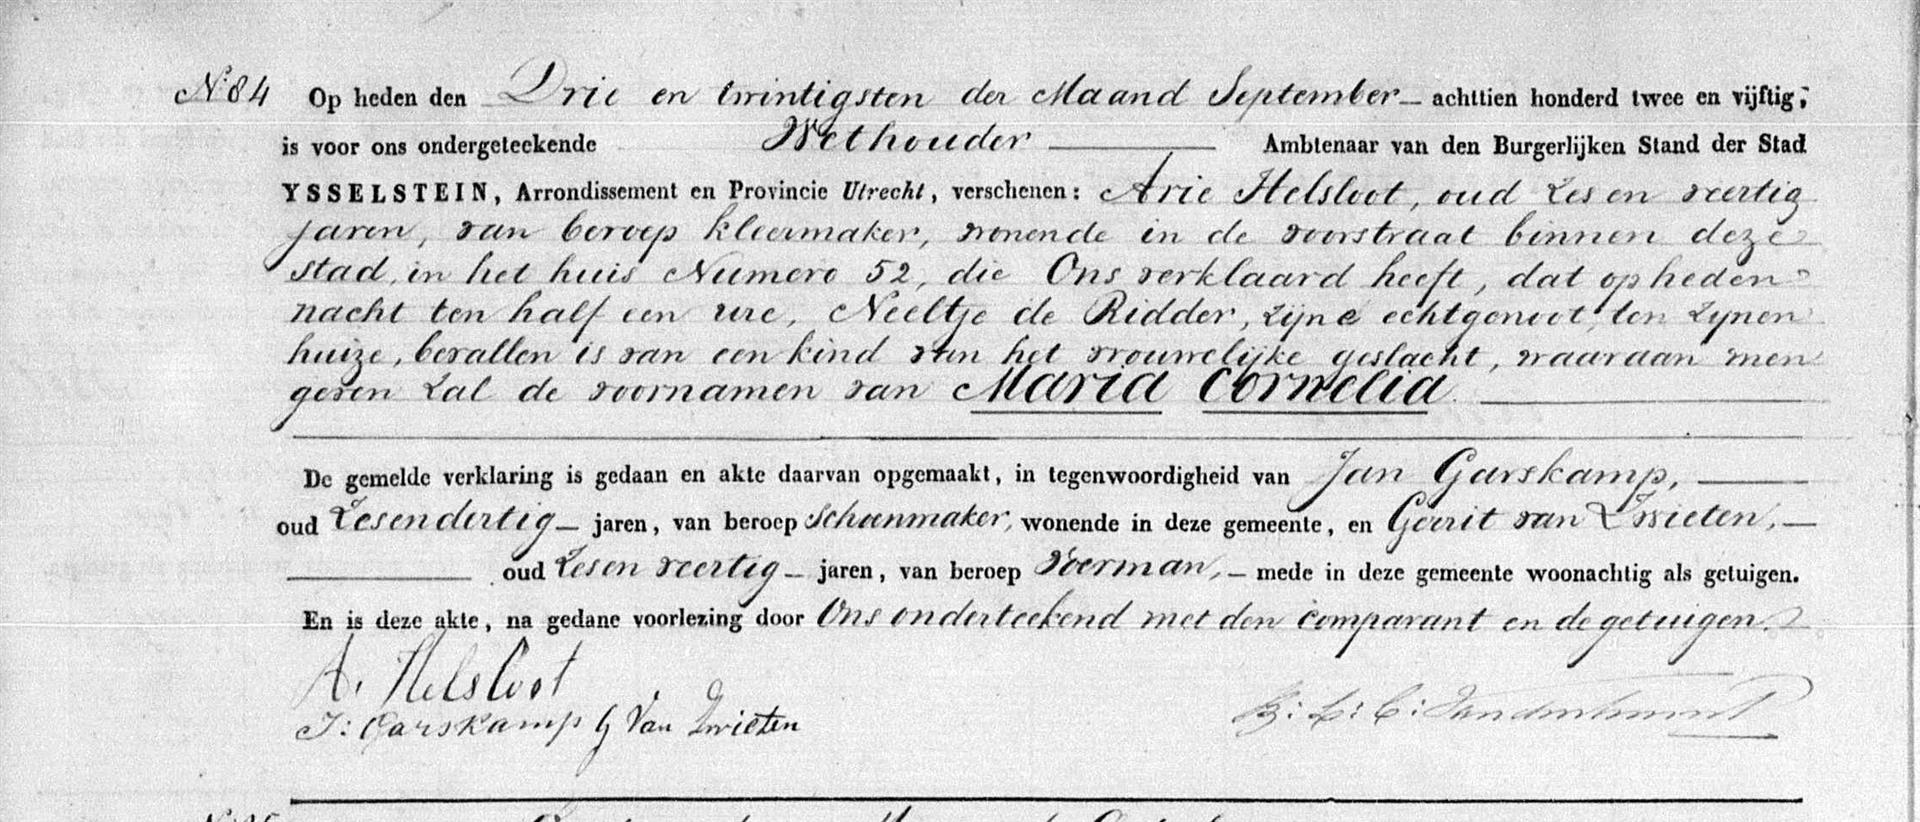 N:84 Op heden den Drie en twintigsten der Maand September achttien honderd twee en vijftig,
is voor ons ondergeteekende Wethouder Ambtenaar van den Burgerlijken Stand der Stad
YSSELSTEIN, Arrondissement en Provincie Utrecht, verschenen: Arie Helsloot, oud Zes en veertig
jaren, van beroep kleermaker, wonende in de voorstraat binnen deze
stad, in het huis Numero 52, die Ons verklaard heeft, dat op heden
nacht ten half een ure, Neeltje de Ridder, zijne echtgenoot, ten zijnen
huize, bevallen is van een kind van het vrouwelijke geslacht, waaraan men
geven zal de voornamen van Maria Cornelia
De gemelde verklaring is gedaan en akte daarvan opgemaakt, in tegenwoordigheid van Jan Garskamp,
oud Zesendertig jaren, van beroep Schoenmaker, wonende in deze gemeente, en Gerrit van Zwieten,
oud Zesen veertig jaren, van beroep Voerman, mede in deze gemeente woonachtig als getuigen.
En is deze akte, na gedane voorlezing door Ons onderteekend met den Comparant en de getuigen.
A. Helsloot
J: Garskamp G Van Zwieten B: L: C: